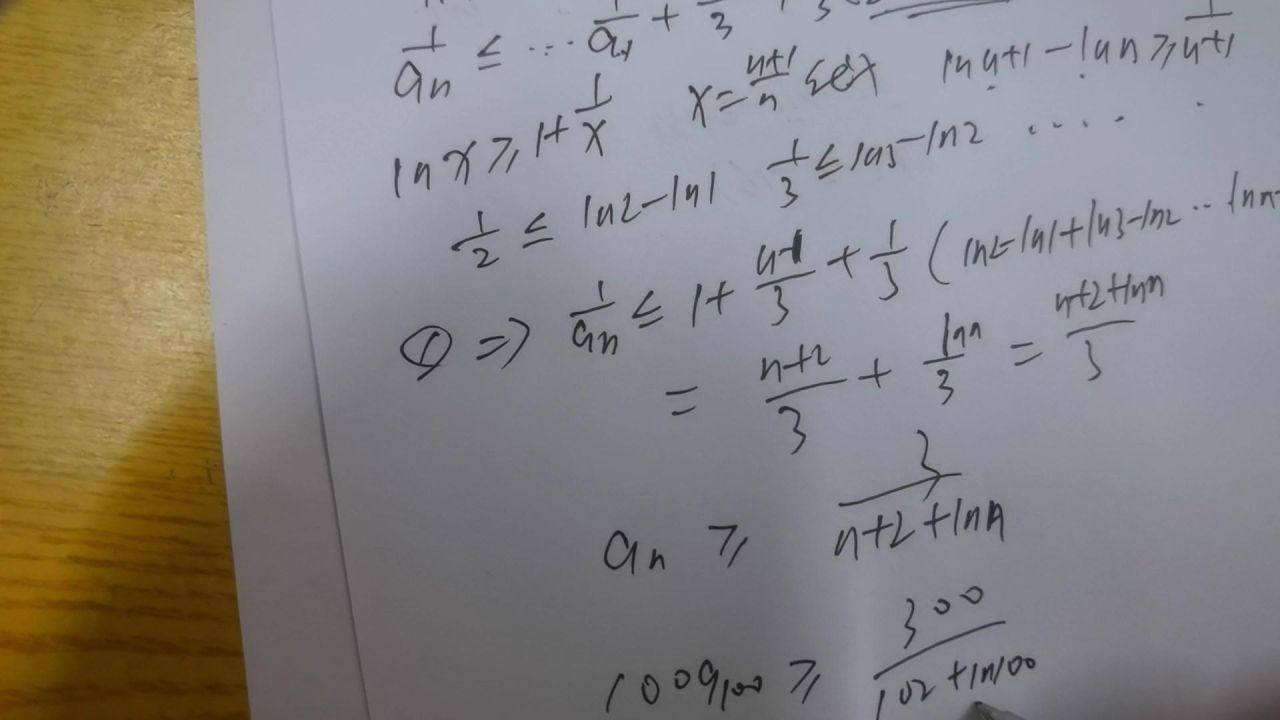 1/aₙ ≤ ... 1/a₁ + /3
ln x ≥ 1+ 1/x   x = n+1/n   ln n+1 - ln n ≥ 1/n+1
1/2 ≤ ln2-ln1   1/3 ≤ ln3-ln2 ....
① ⇒ 1/aₙ ≤ 1+ n-1/3 + 1/3 (ln2-ln1+ln3-ln2 .. lnn-
= n+2/3 + lnn/3 = n+2+lnn/3
aₙ ≥ 3/n+2+lnn
100a₁₀₀ ≥ 300/102+ln100